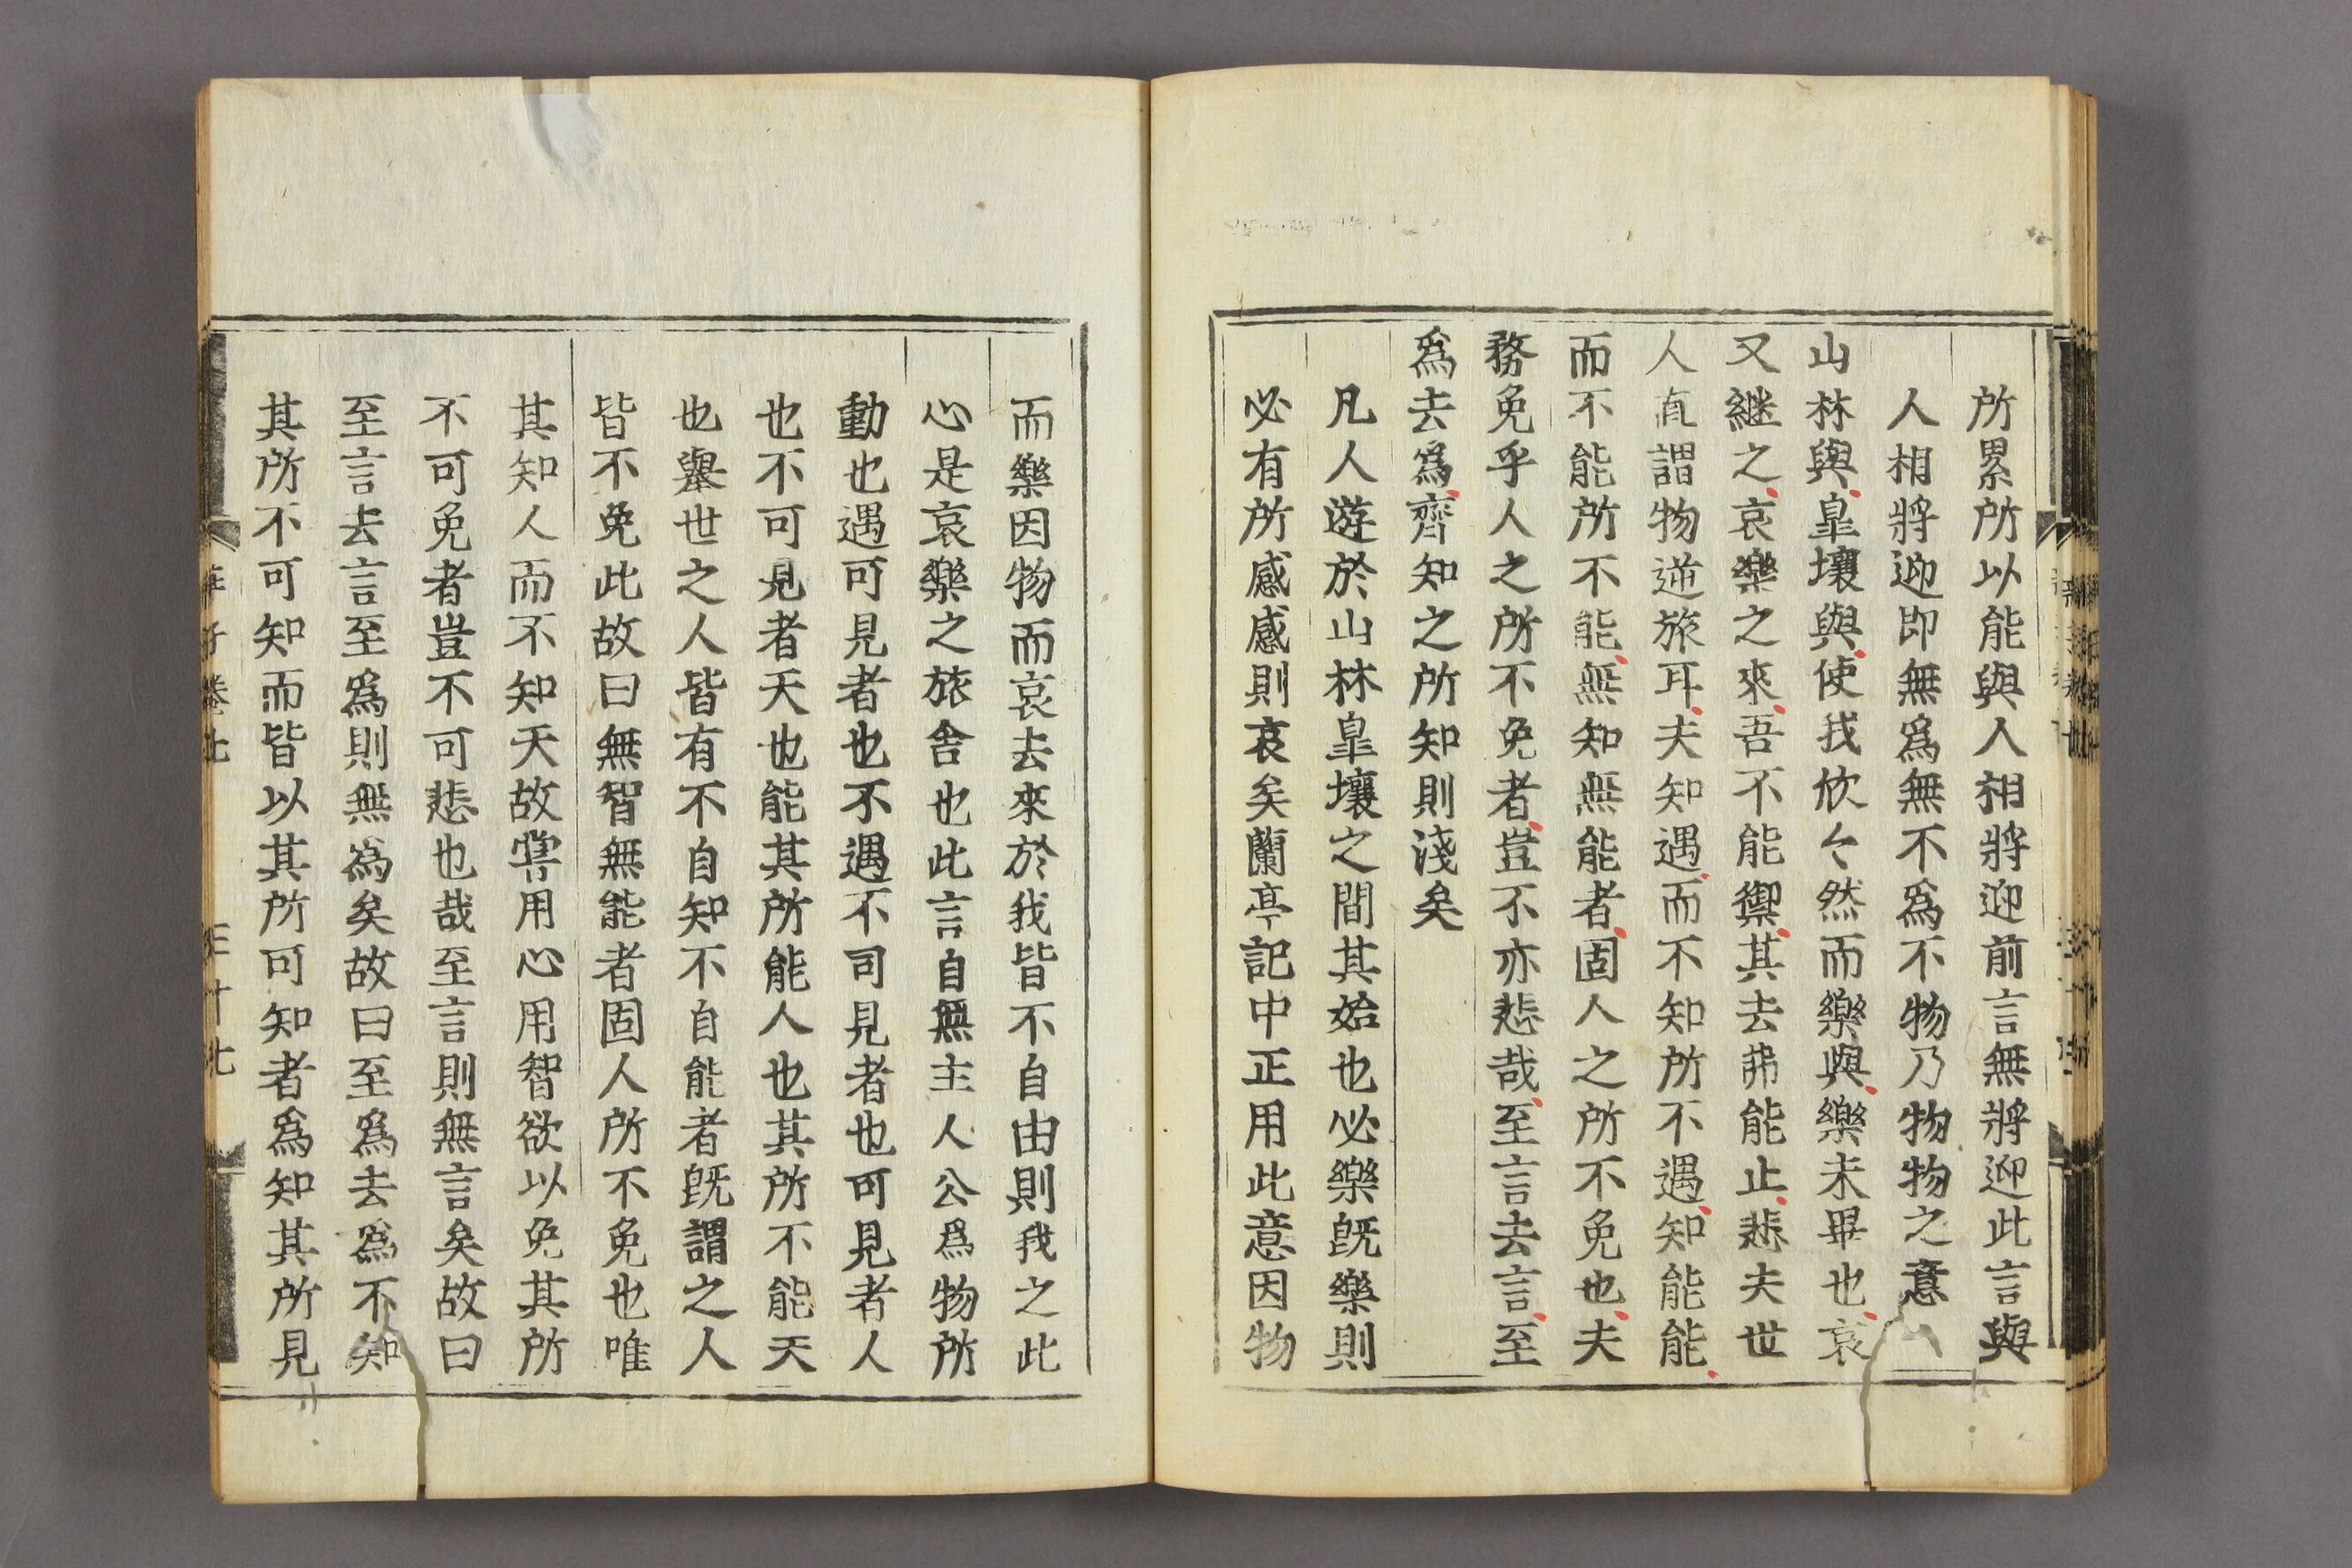 所累所以能與人相將迎前言無將迎此言與
人相將迎即無爲無不爲不物乃物物之意
山林與皐壤與使我欣々然而樂與樂未畢也哀
又継之哀樂之來吾不能禦其去弗能止悲夫世
人直謂物逆旅耳夫知遇而不知所不遇知能能
而不能所不能無知無能者固人之所不免也夫
務免乎人之所不免者豈不亦悲哉至言去言至
爲去爲齊知之所知則淺矣
凡人遊於山林皐壤之間其始也必樂旣樂則
必有所感感則哀矣蘭亭記中正用此意因物
而樂因物而哀去來於我皆不自由則我之此
心是哀樂之旅舍也此言自無主人公爲物所
動也遇可見者也不遇不司見者也可見者人
也不可見者天也能其所能人也其所不能天
也舉世之人皆有不自知不自能者旣謂之人
皆不免此故曰無智無能者固人所不免也唯
其知人而不知天故甞用心用智欲以免其所
不可免者豈不可悲也哉至言則無言矣故曰
至言去言至爲則無爲矣故曰至爲去爲不知
其所不可知而皆以其所可知者爲知其所見
莊子卷七